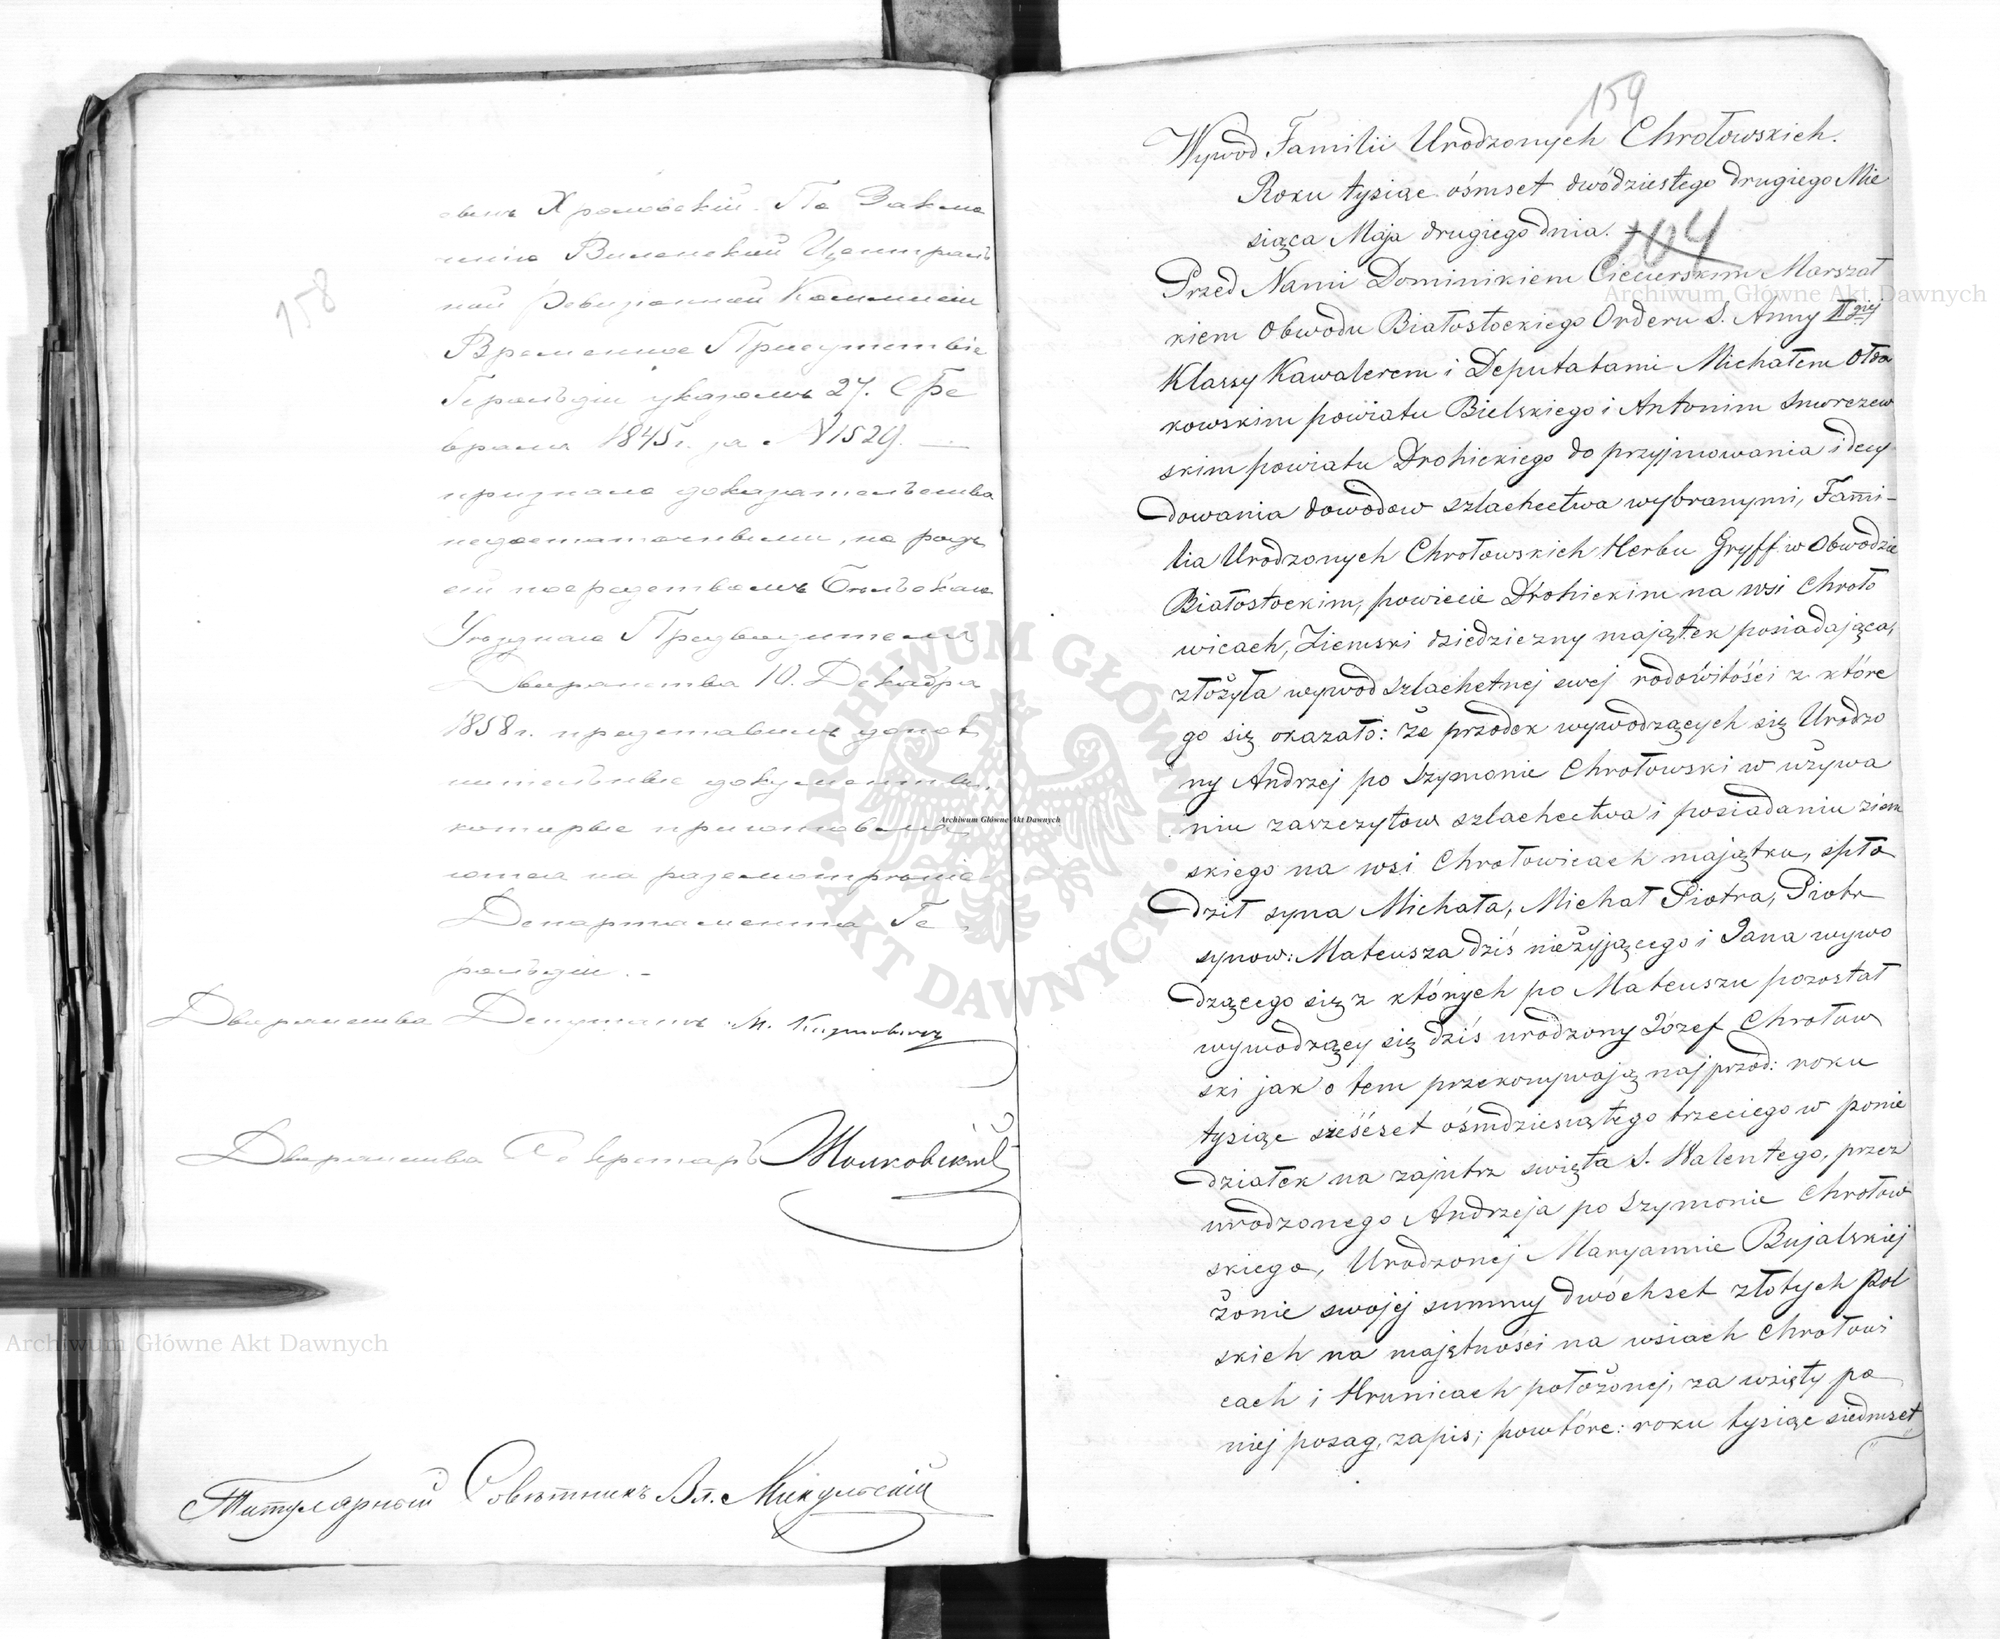 158
Храновскій. По Заклю
ченію Виленской Централь
ной Ревизіонной Коммисіи
Временное Присутствіе
Герольдіи указомъ 27. Фе
враля 1845 г. за N 1529. —
признало доказательства
недостаточными, но родъ
сей посредствомъ Бѣльскаго
Уѣзднаго Предводителя
Дворянства 10. Декабря
1858 г. представилъ допол
нительные документы,
которые
на разсмотрѣніе
Департамента Ге
рольдіи. -
Дворянства Депутатъ М.
Дворянства Секретарь
Титулярный Совѣтникъ Вл. Микульскій
159
Wywod Familii Urodzonych Chrołowskich.
Roku tysiąc ośmset dwódziestego drugiego Mie
siąca Maja drugiego dnia.
104
Przed Nami Dominikiem Ciecierskim Marszał
kiem Obwodu Białostockiego Orderu S. Anny II giej
Klassy Kawalerem i Deputatami Michałem Ołda
kowskim powiatu Bielskiego i Antonim Smorczew
skim powiatu Drohickiego do przyjmowania i decy
dowania dowodow szlachectwa wybranymi, Fami-
lia Urodzonych Chrołowskich Herbu Gryff w Obwodzie
Białostockim, powiecie Drohickim na wsi Chroło
wicach, Ziemski dziedziczny majątek posiadająca,
złożyła wywod szlachetnej swej rodowitości z które
go się okazało: że przodek wywodzących się Urodzo
ny Andrzej po Szymonie Chrołowski w używa
niu zaszczytow szlachectwa i posiadaniu ziem
skiego na wsi Chrołowicach majątku, spło
dził syna Michała, Michał Piotra, Piotr
synow: Mateusza dziś nieżyjącego i Jana wywo
dzącego się z których po Mateuszu pozostał
wywodzący się dziś urodzony Józef Chrołow
ski jak o tem przekonywają najprzod: roku
tysiąc sześćset ośmdziesiątego trzeciego w ponie
działek na zajutrz święta S. Walentego, przez
urodzonego Andrzeja po Szymonie Chrołow
skiego, Urodzonej Maryannie Bujalskiej
żonie swojej summy dwóchset złotych Pol
skich na majętności na wsiach Chrołowi
cach i Hrunicach położonej, za wzięty po
niej posag, zapis; powtóre: roku tysiąc siedmset
Archiwum Główne Akt Dawnych
Archiwum Główne Akt Dawnych
Archiwum Główne Akt Dawnych
ARCHIWUM GŁÓWNE AKT DAWNYCH